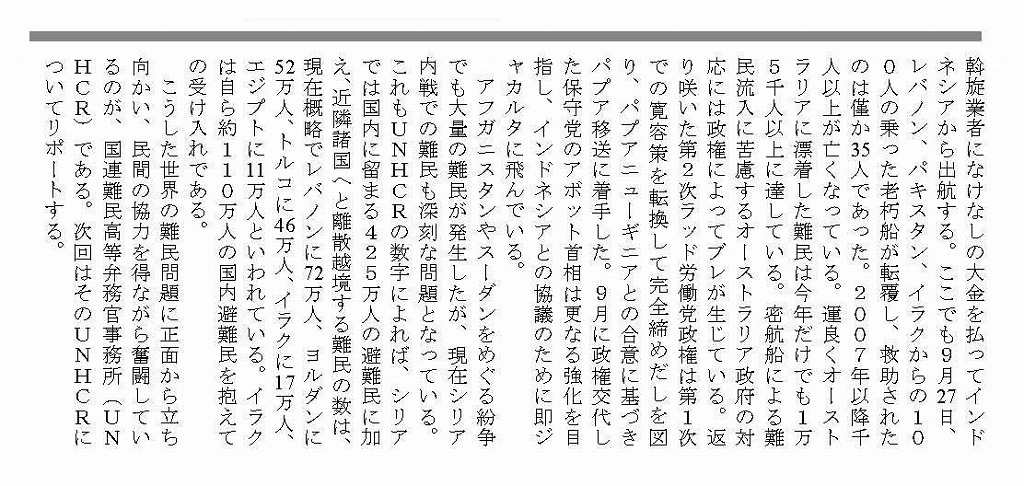 斡旋業者になけなしの大金を払ってインド
ネシアから出航する。ここでも9月27日、
レバノン、パキスタン、イラクからの10
0人の乗った老朽船が転覆し、救助された
のは僅か35人であった。2007年以降千
人以上が亡くなっている。運良くオースト
ラリアに漂着した難民は今年だけでも1万
5千人以上に達している。密航船による難
民流入に苦慮するオーストラリア政府の対
応には政権によってブレが生じている。返
り咲いた第2次ラッド労働党政権は第1次
での寛容策を転換して完全締めだしを図
り、パプアニューギニアとの合意に基づき
パプア移送に着手した。9月に政権交代し
た保守党のアボット首相は更なる強化を目
指し、インドネシアとの協議のために即ジ
ャカルタに飛んでいる。
アフガニスタンやスーダンをめぐる紛争
でも大量の難民が発生したが、現在シリア
内戦での難民も深刻な問題となっている。
これもUNHCRの数字によれば、シリア
では国内に留まる425万人の避難民に加
え、近隣諸国へと離散越境する難民の数は、
現在概略でレバノンに72万人、ヨルダンに
52万人、トルコに46万人、イラクに17万人、
エジプトに11万人といわれている。イラク
は自ら約110万人の国内避難民を抱えて
の受け入れである。
こうした世界の難民問題に正面から立ち
向かい、民間の協力を得ながら奮闘してい
るのが、国連難民高等弁務官事務所（UN
HCR）である。次回はそのUNHCRに
ついてリポートする。